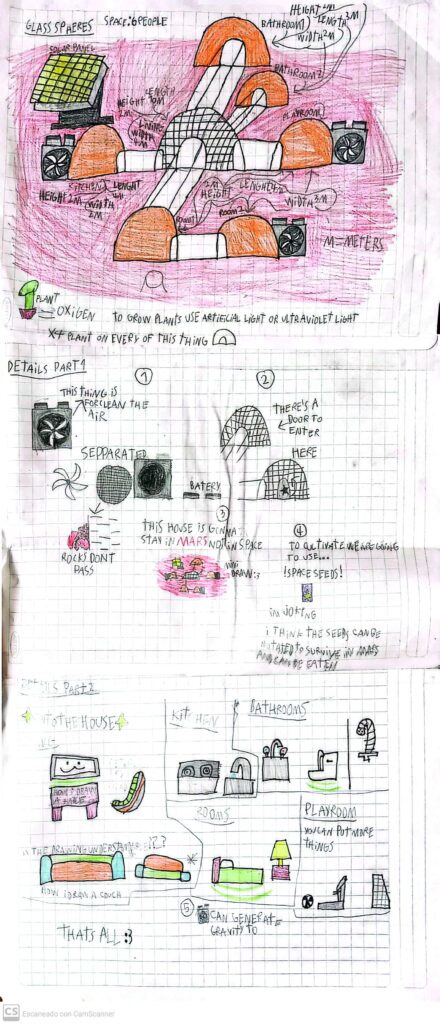 GLASS SPHERES SPACE:6 PEOPLE
SOLAR PANEL
HEIGHT 2M
LENGTH 3M
BATHROOM 1
WIDTH 2M
BATHROOM 2
LENGTH
HEIGHT
LIVING
WIDTH
PLAYROOM
KITCHEN LENGHT
HEIGHT 2M WIDTH
2M
2M
HEIGHT
LENGHT
WIDTH 3M
ROOM 1
ROOM 2
M=METERS
PLANT
OXIGEN
TO GROW PLANTS USE ARTIFICIAL LIGHT OR ULTRAVIOLET LIGHT
X4 PLANT ON EVERY OF THIS THING
DETAILS PART 1
1
THIS THING IS
FOR CLEAN THE
AIR
SEPPARATED
BATERY
ROCKS DONT
PASS
2
THERE'S A
DOOR TO
ENTER
HERE
3
THIS HOUSE IS GONNA
STAY IN MARS NOT IN SPACE
MINI
DRAW :3
4
TO CULTIVATE WE ARE GOING
TO USE...
!SPACE SEEDS!
IM JOKING
I THINK THE SEEDS CAN BE
MUTATED TO SURVIVE IN MARS
AND CAN BE EATEN
DETAILS PART 2
INTO THE HOUSE
KITCHEN
BATHROOMS
ROOMS
PLAYROOM
YOU CAN PUT MORE
THINGS
IS THE DRAWING UNDERSTANDABLE!?
HOW I DRAW A COUCH
5
CAN GENERATE
GRAVITY TO
THATS ALL :3
CS Escaneado con CamScanner